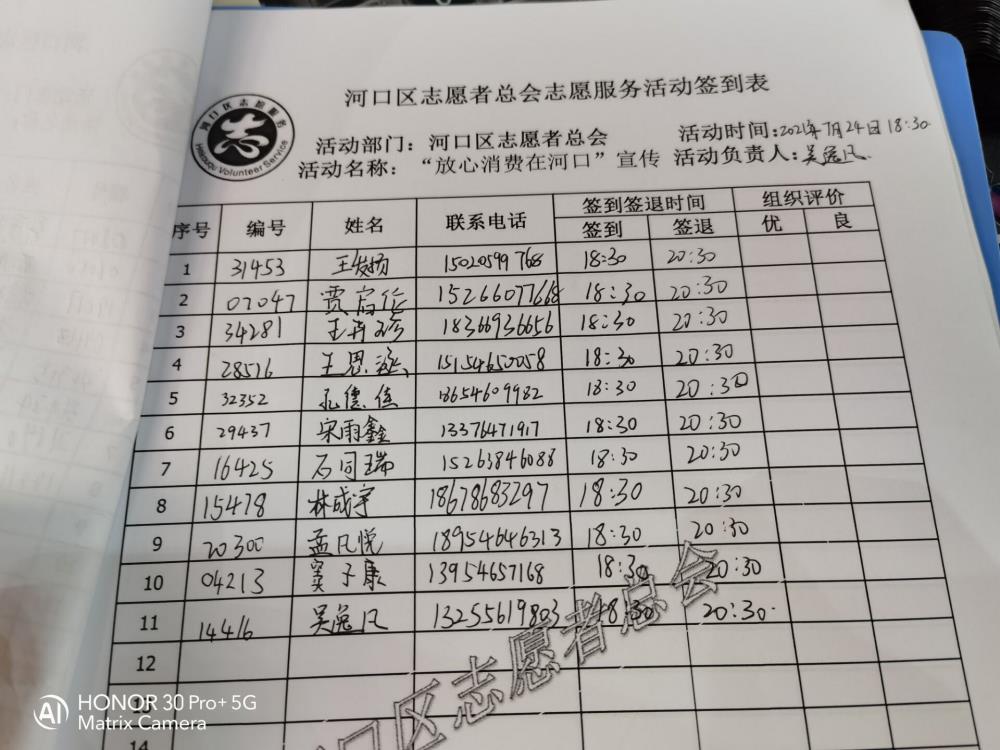 河口区志愿者总会志愿服务活动签到表
河口区志愿服务
志
Hekouqu Volunteer Service
活动部门：河口区志愿者总会 活动时间：2021年7月24日18:30
活动名称：“放心消费在河口”宣传 活动负责人：吴逸凡
序号 编号 姓名 联系电话 签到签退时间 组织评价
签到 签退 优 良
1 31453 王发扬 15020599768 18:30 20:30
2 07047 贾启佐 15266077668 18:30 20:30
3 34281 王冉珍 18366936656 18:30 20:30
4 28516 王思涵 15154650058 18:30 20:30
5 32352 孔德佳 18654609982 18:30 20:30
6 29437 宋雨鑫 13376471917 18:30 20:30
7 16425 石同瑞 15263846088 18:30 20:30
8 15478 林成宇 18678683297 18:30 20:30
9 20300 孟凡悦 18954646313 18:30 20:30
10 04213 窦子康 13954657168 18:30 20:30
11 14416 吴逸凡 13255619803 18:30 20:30
12
13
14
口区志愿者总会
HONOR 30 Pro+ 5G
Matrix Camera